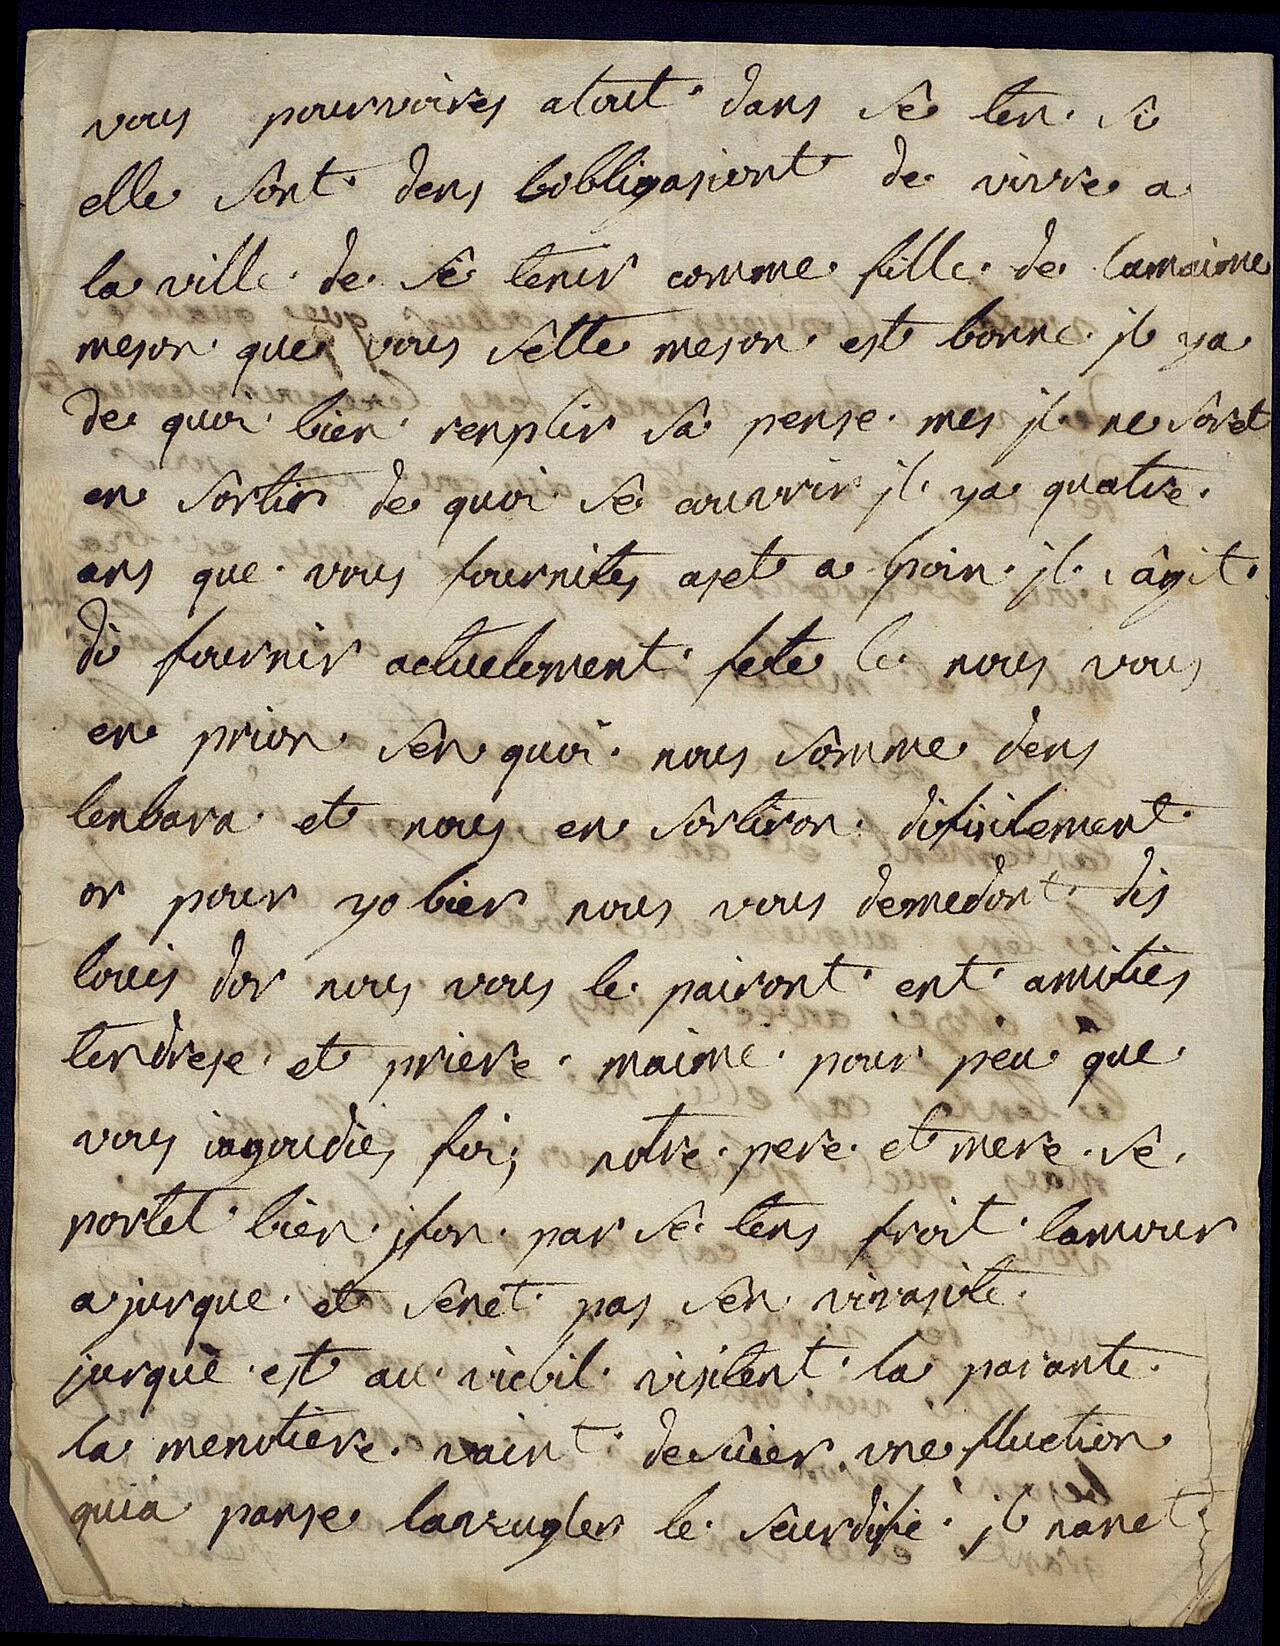 vous pourvoires atout dans sê ten. si
elle sont dens lobligasiont de vivre a
la ville de sê tenir comme fille de lamaime
meson que vous sette meson est bonne jl ya
de quoi bien remplir sa panse mes jl ne soret
en sortir de quoi sê couvrir jl ya quatre
ans que vous fournites aset a poin jl sâgit
di fournir actuelement fete le nous vous
en prion sen quoi nous somme dens
lenbara et nous en sortiron difisilement
or pour yobier nous vous demedont dis
louis dor nous vous le paivont ent amities
tendrese et priere maime pour peu que
vous fois notre pere et mere sê
portet bien jfon par sê tens froit lamour
a jurque et senet pas sen vivasite
jurquê est au vieil visitent la parante
la menotiere vaint desuier une fluction
quia panse laveugler le seurdisie jl nanet